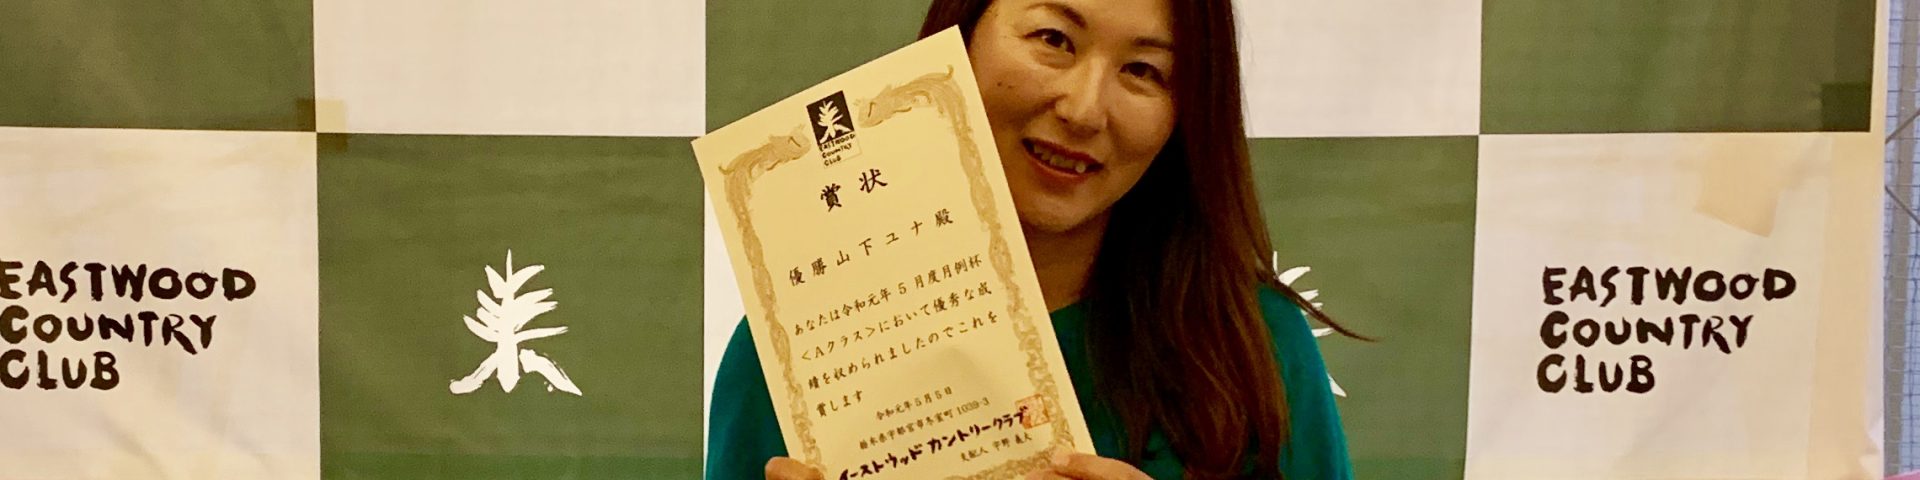 EASTWOOD
COUNTRY
CLUB
EASTWOOD
COUNTRY
CLUB
賞状
優勝 山下ユナ殿
あなたは令和元年5月度月例杯
<Aクラス>において優秀な成
績を収められましたのでこれを
賞します
令和元年5月5日
栃木県宇都宮市冬室町1039-3
イーストウッドカントリークラブ
支配人 宇野 義夫
EASTWOOD
COUNTRY
CLUB